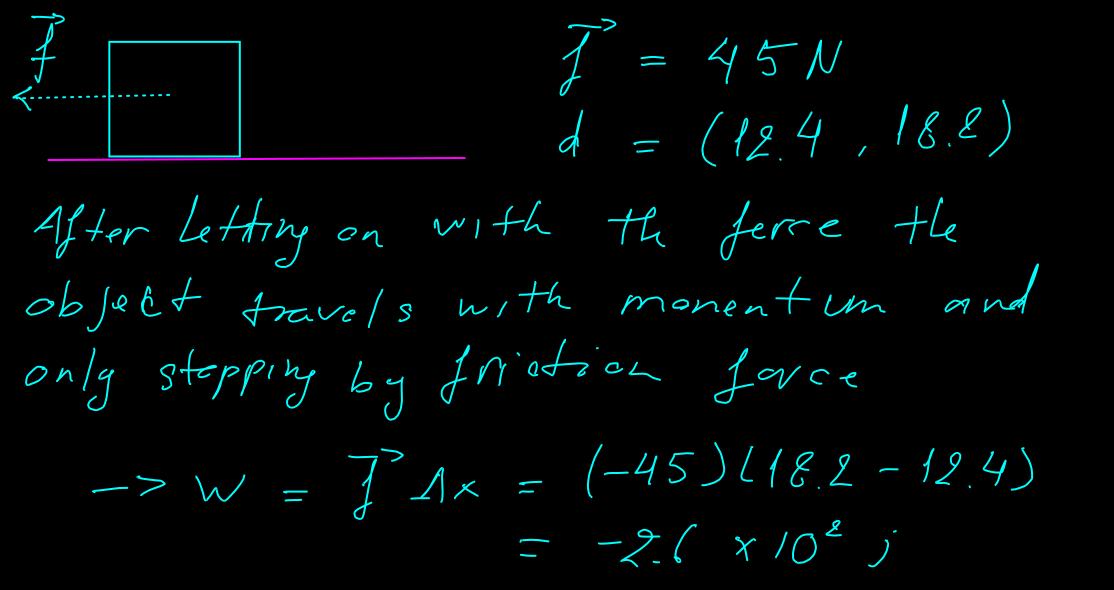 f
f = 45 N
d = (12.4, 18.2)
After letting on with th force the
object travels with momentum and
only stopping by friction force
-> W = f Δx = (-45)(18.2 - 12.4)
= -2.6 × 10² j